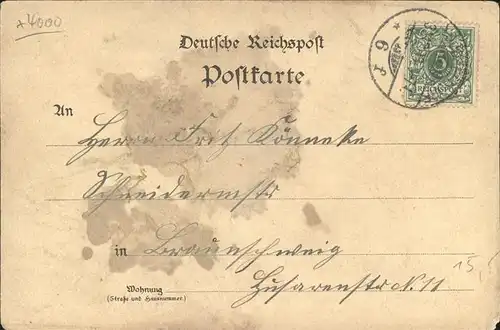 x4000
Deutsche Reichspost
Postkarte
An
Herrn Fritz Könneke
Schneidermstr
in Braunschweig
Wohnung
(Straße und Hausnummer.)
Husarenstr N. 11
5
15,-